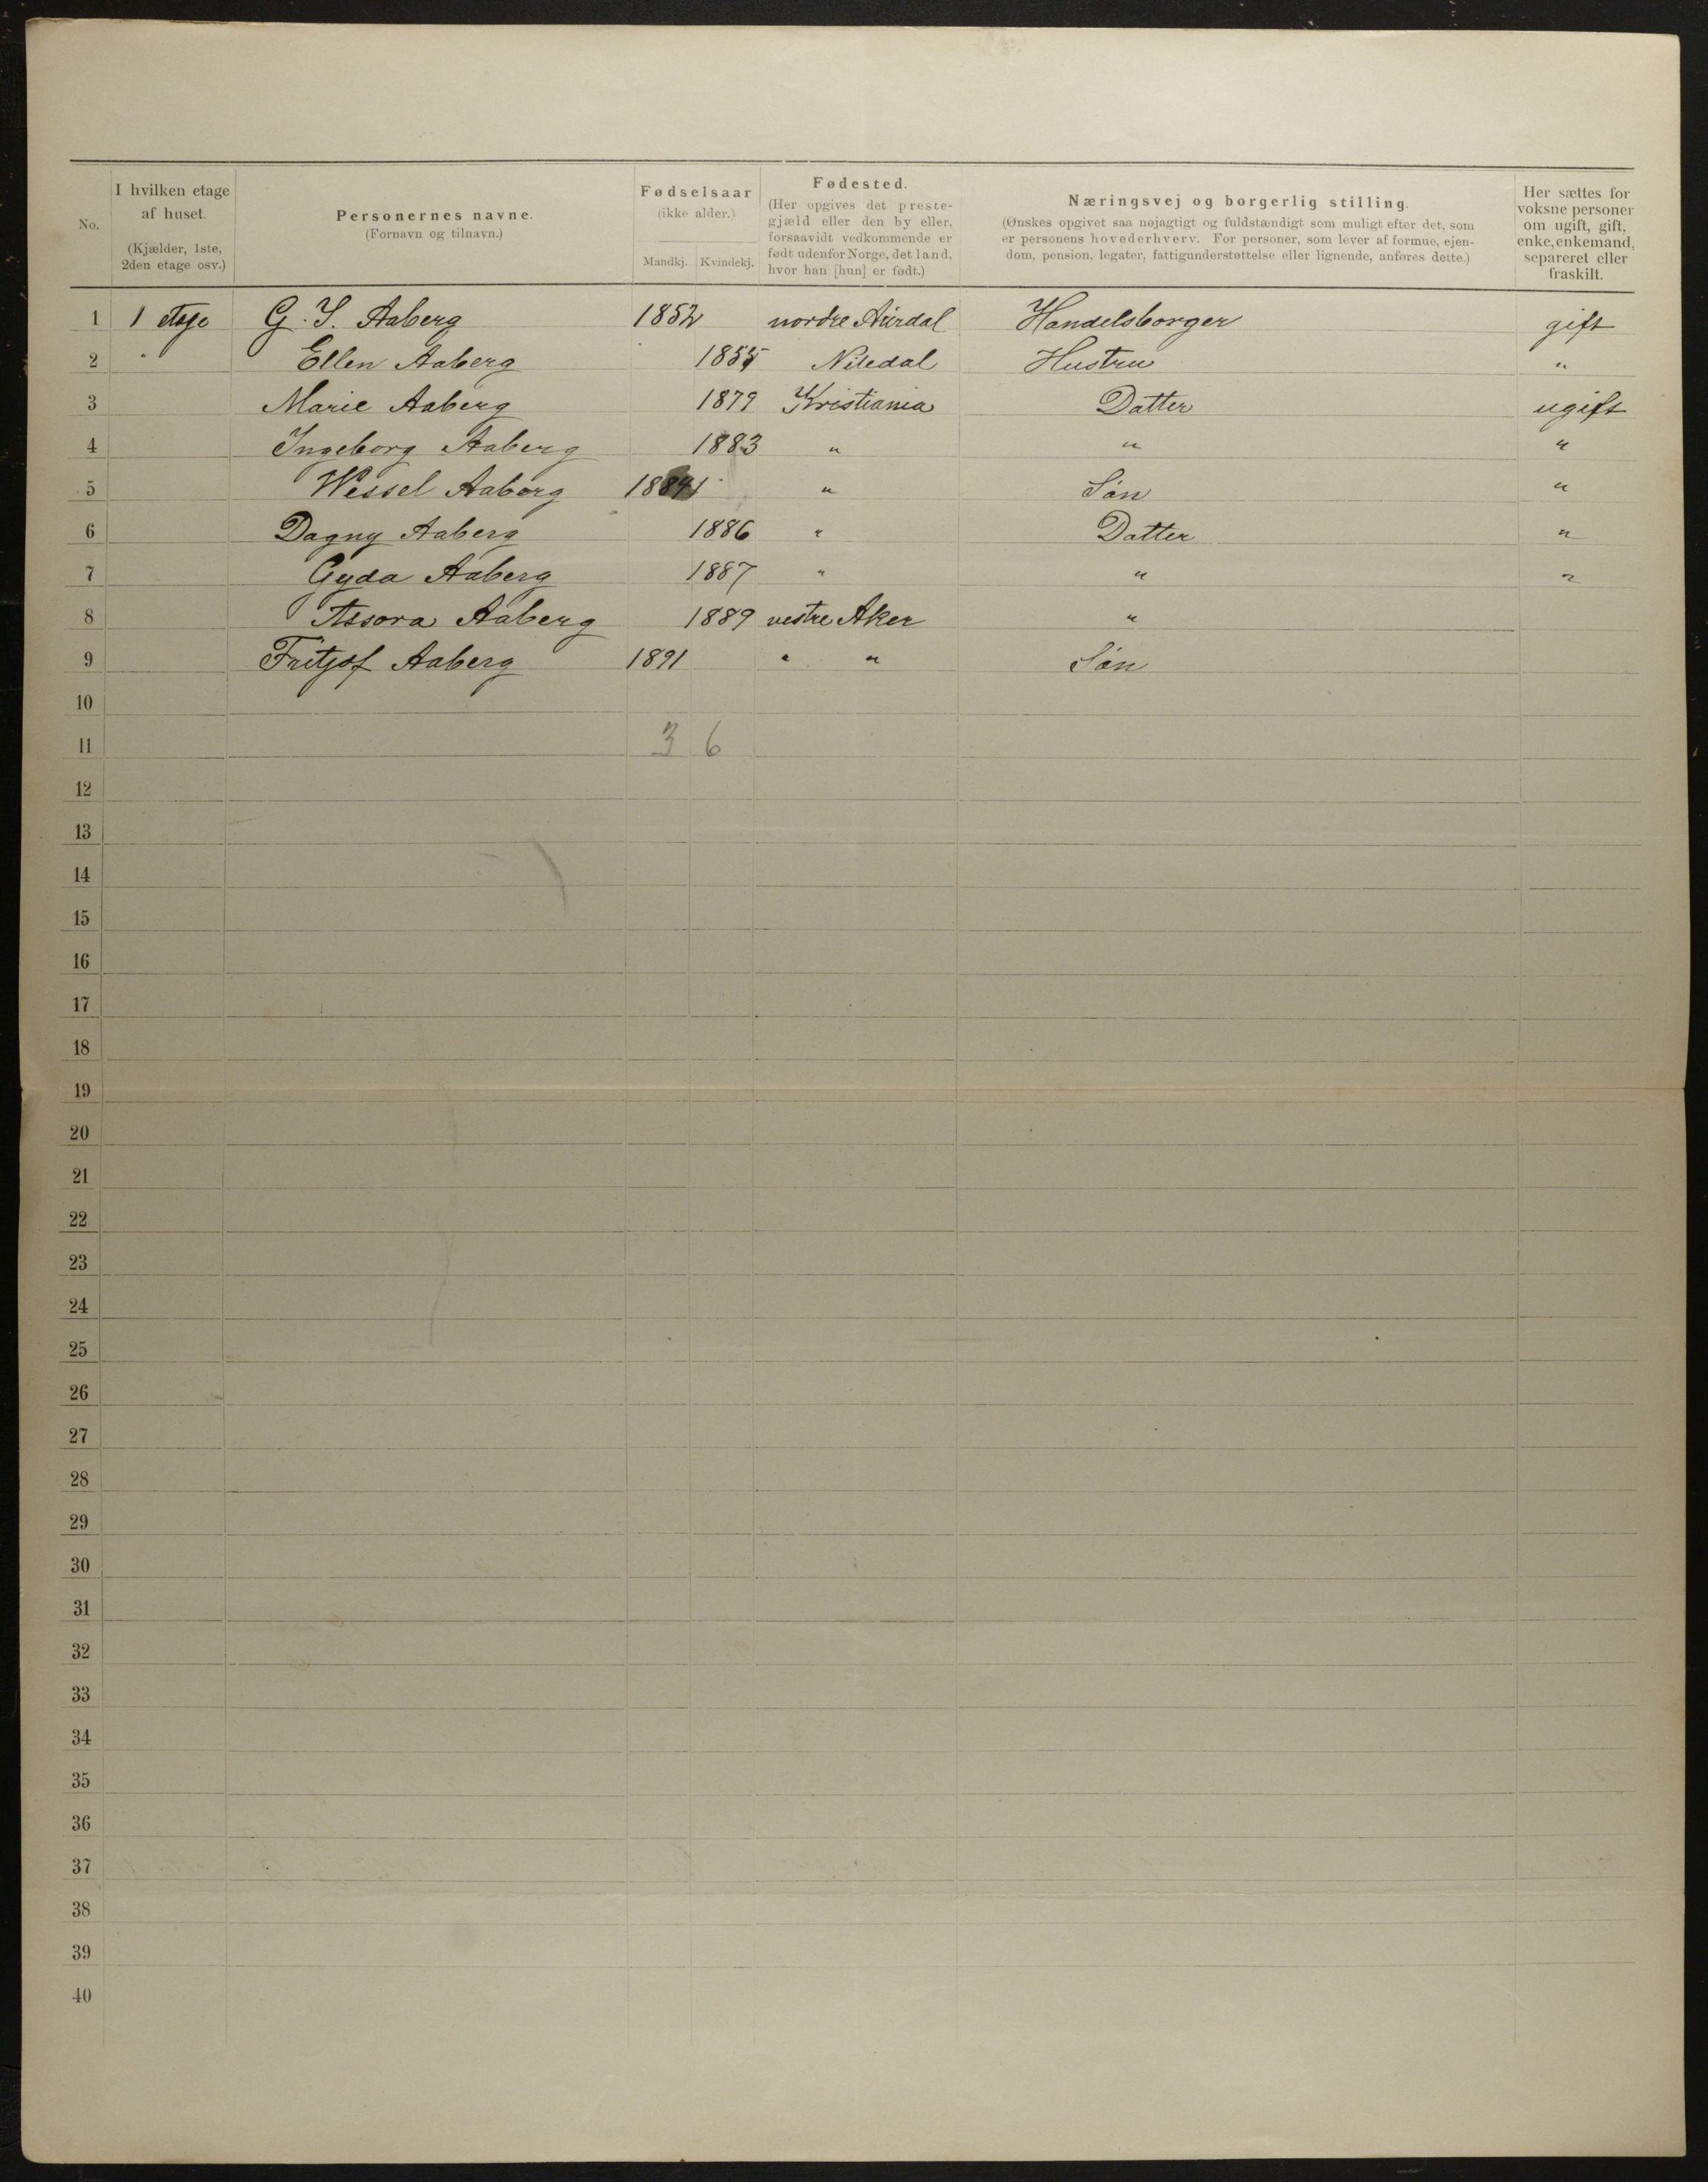 No. I hvilken etage af huset. (Kjælder, 1ste, 2den etage osv.) Personernes navne. (Fornavn og tilnavn.) Fødselsaar (ikke alder.) Mandkj. Kvindekj. Fødested. (Her opgives det prestegjæld eller den by eller, forsaavidt vedkommende er født udenfor Norge, det land, hvor han [hun] er født.) Næringsvej og borgerlig stilling. (Ønskes opgivet saa nøjagtigt og fuldstændigt som muligt efter det, som er personens hovederhverv. For personer, som lever af formue, ejendom, pension, legater, fattigunderstøttelse eller lignende, anføres dette.) Her sættes for voksne personer om ugift, gift, enke, enkemand, separeret eller fraskilt.
1 1 etage G. I. Aaberg 1852 nordre Aurdal Handelsborger gift
2 " Ellen Aaberg 1855 Nitedal Hustru "
3 Marie Aaberg 1879 Kristiania Datter ugift
4 Ingeborg Aaberg 1883 " " "
5 Wessel Aaberg 1884 " Søn "
6 Dagny Aaberg 1886 " Datter "
7 Gyda Aaberg 1887 " " "
8 Assora Aaberg 1889 vestre Aker "
9 Fritjof Aaberg 1891 " " Søn
10
11 3 6
12
13
14
15
16
17
18
19
20
21
22
23
24
25
26
27
28
29
30
31
32
33
34
35
36
37
38
39
40